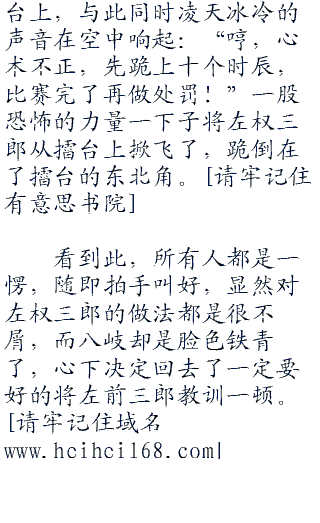 台上，与此同时凌天冰冷的
声音在空中响起：“哼，心
术不正，先跪上十个时辰，
比赛完了再做处罚！”一股
恐怖的力量一下子将左权三
郎从擂台上掀飞了，跪倒在
了擂台的东北角。[请牢记住
有意思书院]
看到此，所有人都是一
愣，随即拍手叫好，显然对
左权三郎的做法都是很不
屑，而八岐却是脸色铁青
了，心下决定回去了一定要
好的将左前三郎教训一顿。
[请牢记住域名
www.hcihci168.com|